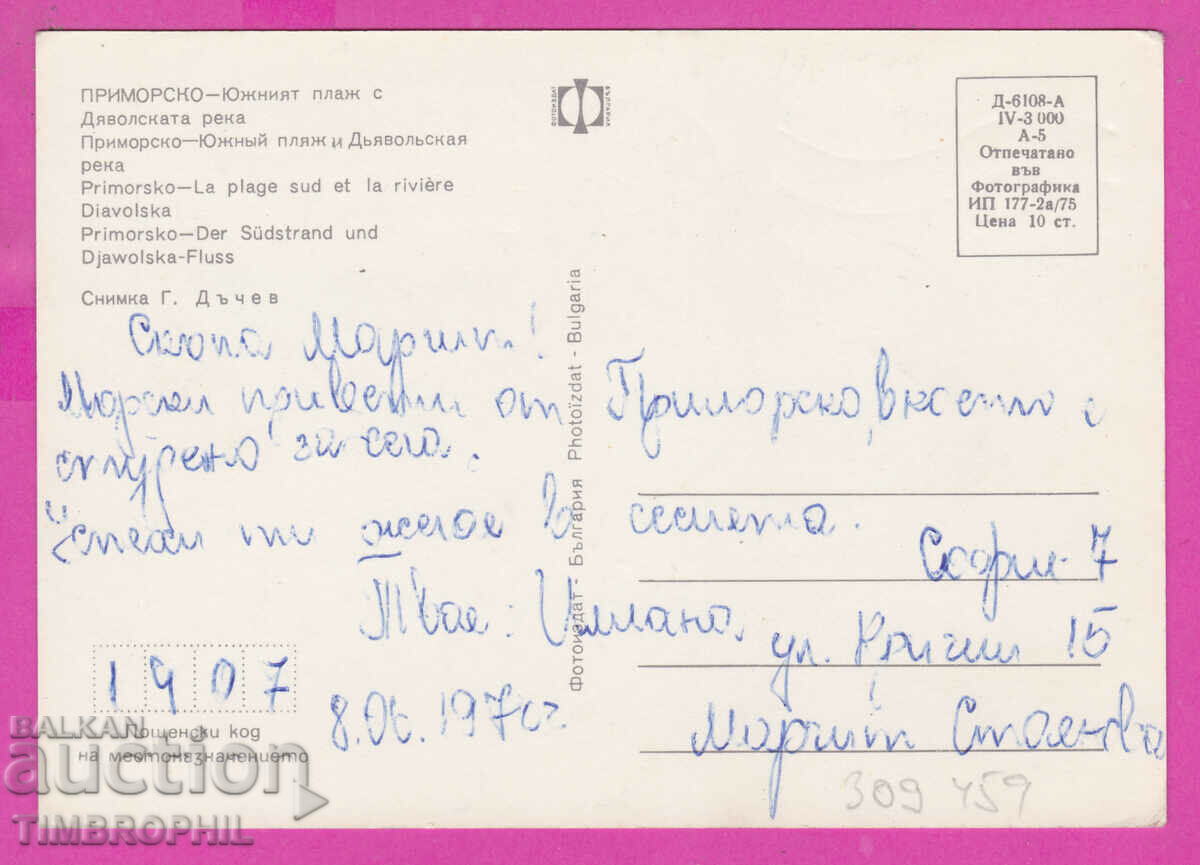 ПРИМОРСКО—Южният плаж с
Дяволската река
Приморско—Южный пляж и Дьявольская
река
Primorsko—La plage sud et la rivière
Diavolska
Primorsko—Der Südstrand und
Djawolska-Fluss
Снимка Г. Дъчев
ФОТОИЗДАТ
БЪЛГАРИЯ
Д-6108-А
IV-3 000
А-5
Отпечатано
във
Фотографика
ИП 177-2а/75
Цена 10 ст.
Фотоиздат - България Photoïzdat - Bulgaria
Скъпа
Морски привети от Приморско, където е
за сега.
ти желае в сесията.
Твоя:
София-7
ул. 15
Стоянова
1407
8.06.197 г.
Пощенски код
на местоназначението
309 459
BALKAN
auction
TIMBROPHIL